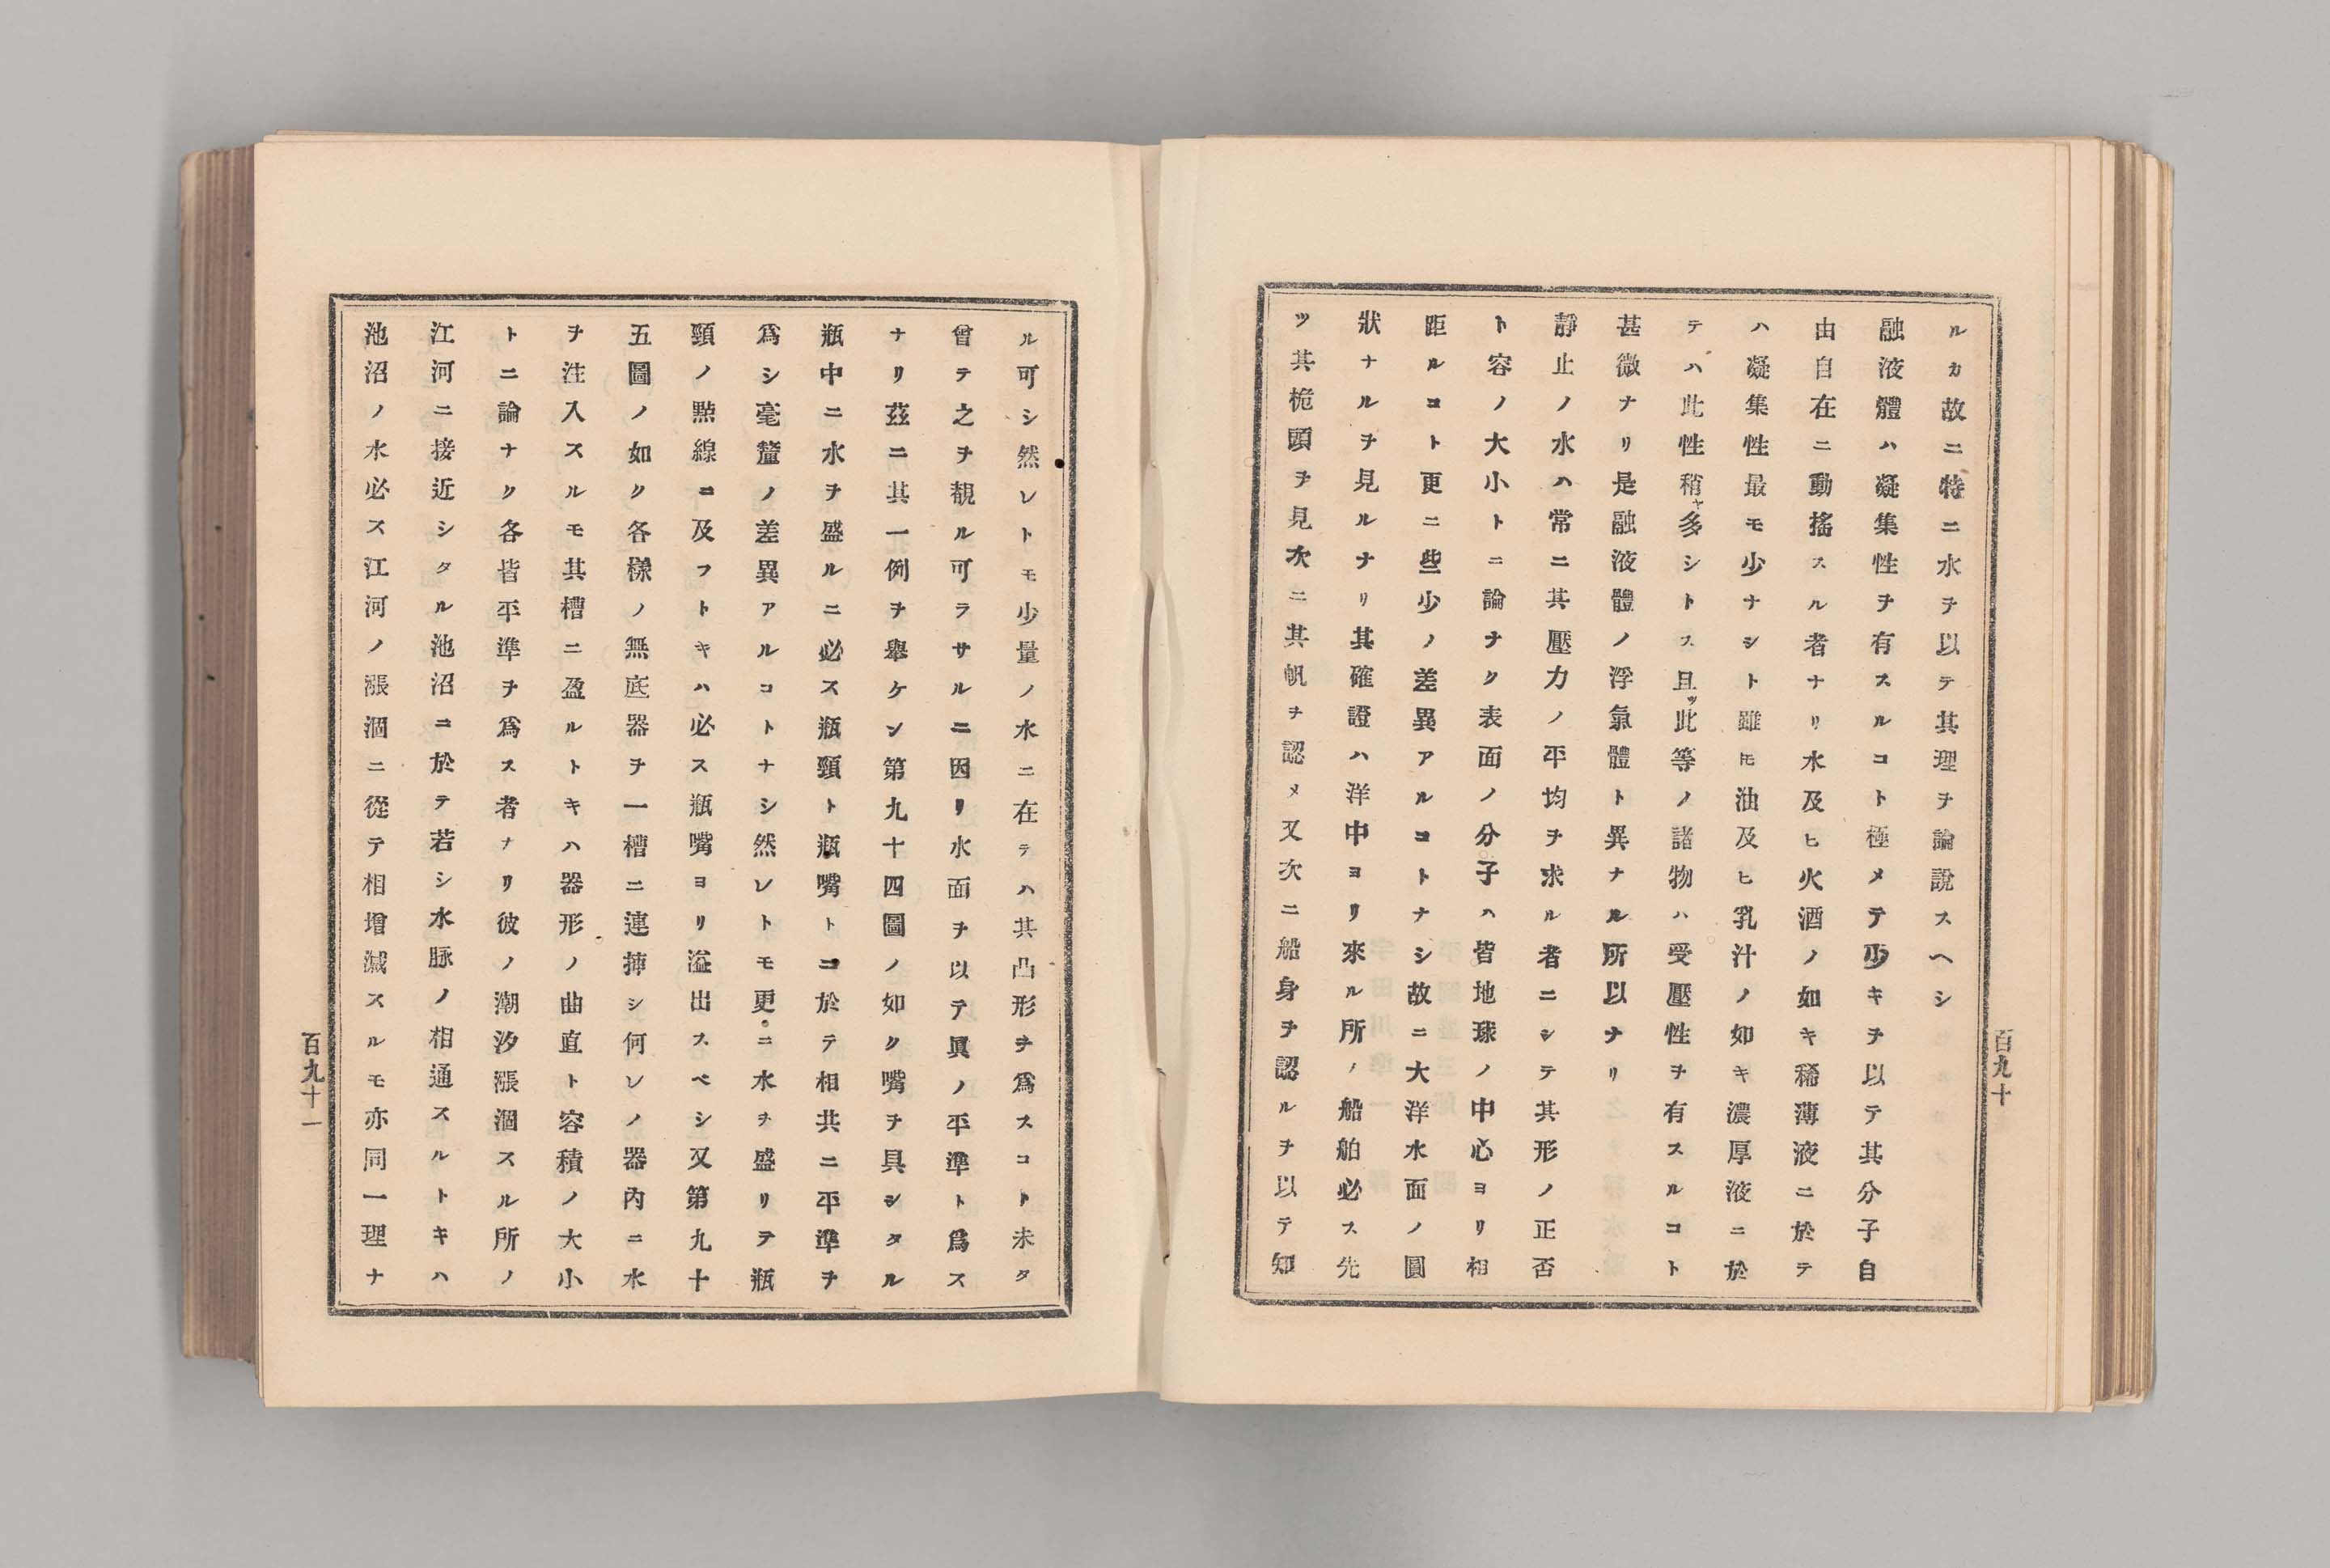 ルカ故ニ特ニ水ヲ以テ其理ヲ論說スヘシ
融液體ハ凝集性ヲ有スルコト極メテ少キヲ以テ其分子自
由自在ニ動搖スル者ナリ水及ヒ火酒ノ如キ稀薄液ニ於テ
ハ凝集性最モ少ナシト雖𪜈油及ヒ乳汁ノ如キ濃厚液ニ於
テハ此性稍ャ多シトス且ッ此等ノ諸物ハ受壓性ヲ有スルコト
甚微ナリ是融液體ノ浮氣體ト異ナル所以ナリ
靜止ノ水ハ常ニ其壓力ノ平均ヲ求ル者ニシテ其形ノ正否
ト容ノ大小トニ論ナク表面ノ分子ハ皆地球ノ中心ヨリ相
距ルコト更ニ些少ノ差異アルコトナシ故ニ大洋水面ノ圓
狀ナルヲ見ルナリ其確證ハ洋中ヨリ來ル所ノ船舶必ス先
ツ其桅頭ヲ見次ニ其帆ヲ認メ又次ニ船身ヲ認ルヲ以テ知
百九十
ル可シ然レトモ少量ノ水ニ在テハ其凸形ヲ爲スコト未タ
曾テ之ヲ覩ル可ラサルニ因リ水面ヲ以テ眞ノ平準ト爲ス
ナリ茲ニ其一例ヲ擧ケン第九十四圖ノ如ク嘴ヲ具シタル
瓶中ニ水ヲ盛ルニ必ス瓶頸ト瓶嘴トニ於テ相共ニ平準ヲ
爲シ毫釐ノ差異アルコトナシ然レトモ更ニ水ヲ盛リテ瓶
頸ノ㸃線ニ及フトキハ必ス瓶嘴ヨリ溢出スベシ又第九十
五圖ノ如ク各樣ノ無底器ヲ一槽ニ連揷シ何レノ器內ニ水
ヲ注入スルモ其槽ニ盈ルトキハ器形ノ曲直ト容積ノ大小
トニ論ナク各皆平準ヲ爲ス者ナリ彼ノ潮汐漲涸スル所ノ
江河ニ接近シタル池沼ニ於テ若シ水脉ノ相通スルトキハ
池沼ノ水必ス江河ノ漲涸ニ從テ相增減スルモ亦同一理ナ
百九十一